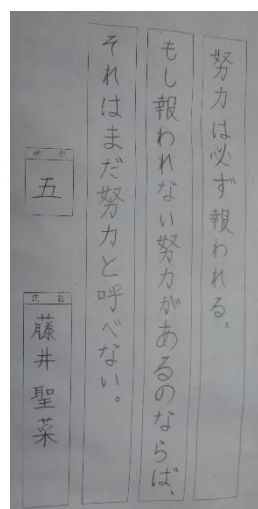 努力は必ず報われる。
もし報われない努力があるのならば、
それはまだ努力と呼べない。
五
氏名
藤井聖菜